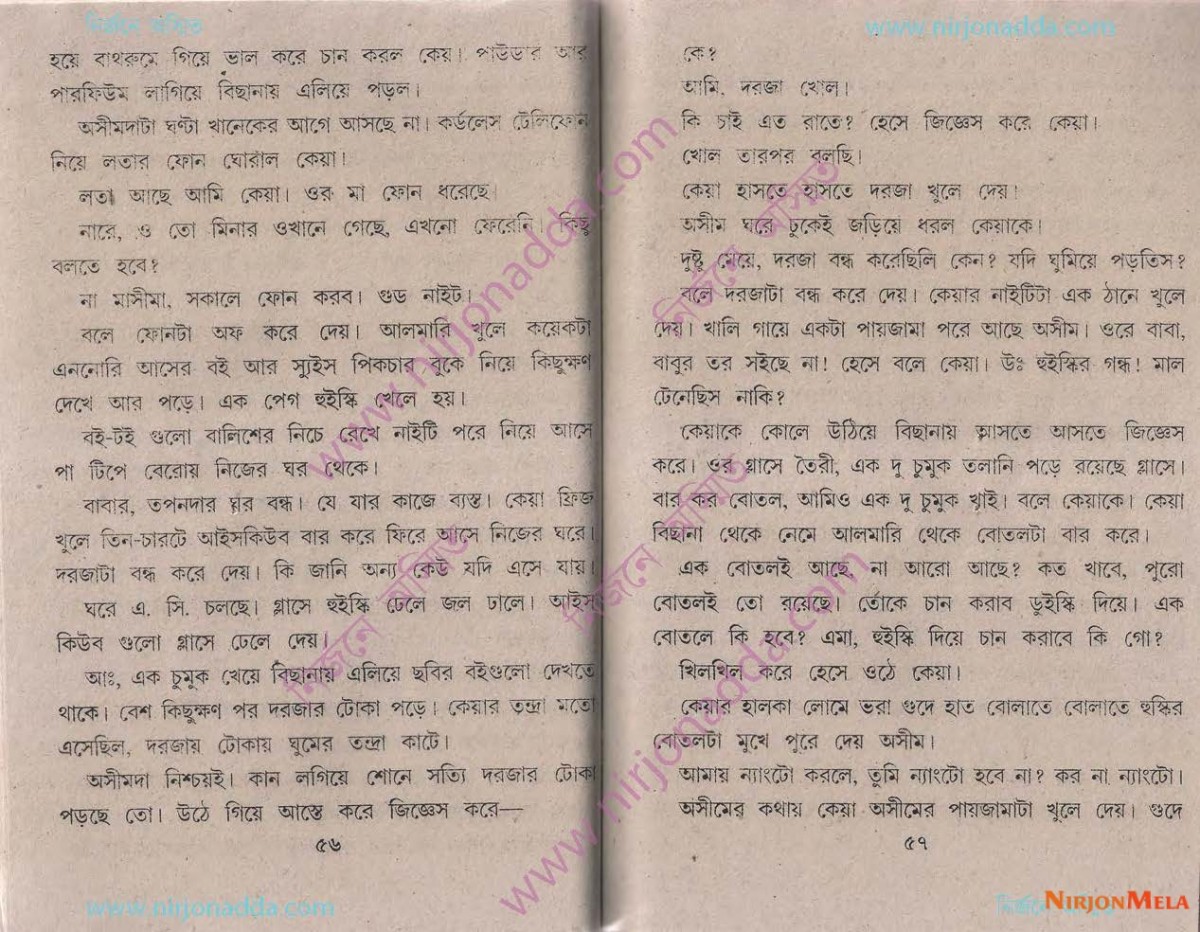 নির্জনে অমিত
www.nirjonadda.com
হয়ে বাথরুমে গিয়ে ভাল করে চান করল কেয়া। পাউডার আর
পারফিউম লাগিয়ে বিছানায় এলিয়ে পড়ল।
অসীমদাটা ঘণ্টা খানেকের আগে আসছে না। কর্ডলেস টেলিফোন
নিয়ে লতার ফোন ঘোরাল কেয়া।
লতা আছে আমি কেয়া। ওর মা ফোন ধরেছে।
নারে, ও তো মিনার ওখানে গেছে, এখনো ফেরেনি। কিছু
বলতে হবে?
না মাসীমা, সকালে ফোন করব। গুড নাইট।
বলে ফোনটা অফ করে দেয়। আলমারি খুলে কয়েকটা
এননোরি আসের বই আর স্যুইস পিকচার বুকে নিয়ে কিছুক্ষণ
দেখে আর পড়ে। এক পেগ হুইস্কি খেলে হয়।
বই-টই গুলো বালিশের নিচে রেখে নাইটি পরে নিয়ে আসে
পা টিপে বেরোয় নিজের ঘর থেকে।
বাবার, তপনদার ঘর বন্ধ। যে যার কাজে ব্যস্ত। কেয়া ফ্রিজ
খুলে তিন-চারটে আইসকিউব বার করে ফিরে আসে নিজের ঘরে।
দরজাটা বন্ধ করে দেয়। কি জানি অন্য কেউ যদি এসে যায়।
ঘরে এ. সি. চলছে। গ্লাসে হুইস্কি ঢেলে জল ঢালে। আইস
কিউব গুলো গ্লাসে ঢেলে দেয়।
আঃ, এক চুমুক খেয়ে বিছানায় এলিয়ে ছবির বইগুলো দেখতে
থাকে। বেশ কিছুক্ষণ পর দরজার টোকা পড়ে। কেয়ার তন্দ্রা মতো
এসেছিল, দরজায় টোকায় ঘুমের তন্দ্রা কাটে।
অসীমদা নিশ্চয়ই। কান লগিয়ে শোনে সত্যি দরজার টোকা
পড়ছে তো। উঠে গিয়ে আস্তে করে জিজ্ঞেস করে—
৫৬
কে?
আমি. দরজা খোল।
কি চাই এত রাতে? হেসে জিজ্ঞেস করে কেয়া।
খোল তারপর বলছি।
কেয়া হাসতে হাসতে দরজা খুলে দেয়।
অসীম ঘরে ঢুকেই জড়িয়ে ধরল কেয়াকে।
দুষ্টু মেয়ে, দরজা বন্ধ করেছিলি কেন? যদি ঘুমিয়ে পড়তিস?
বলে দরজাটা বন্ধ করে দেয়। কেয়ার নাইটিটা এক ঠানে খুলে
দেয়। খালি গায়ে একটা পায়জামা পরে আছে অসীম। ওরে বাবা,
বাবুর তর সইছে না! হেসে বলে কেয়া। উঃ হুইস্কির গন্ধ! মাল
টেনেছিস নাকি?
কেয়াকে কোলে উঠিয়ে বিছানায় আসতে আসতে জিজ্ঞেস
করে। ওর গ্লাসে তৈরী, এক দু চুমুক তলানি পড়ে রয়েছে গ্লাসে।
বার কর বোতল, আমিও এক দু চুমুক খাই। বলে কেয়াকে। কেয়া
বিছানা থেকে নেমে আলমারি থেকে বোতলটা বার করে।
এক বোতলই আছে, না আরো আছে? কত খাবে, পুরো
বোতলই তো রয়েছে। তোকে চান করাব হুইস্কি দিয়ে। এক
বোতলে কি হবে? এমা, হুইস্কি দিয়ে চান করাবে কি গো?
খিলখিল করে হেসে ওঠে কেয়া।
কেয়ার হালকা লোমে ভরা গুদে হাত বোলাতে বোলাতে হুস্কির
বোতলটা মুখে পুরে দেয় অসীম।
আমায় ন্যাংটো করলে, তুমি ন্যাংটো হবে না? কর না ন্যাংটো।
অসীমের কথায় কেয়া অসীমের পায়জামাটা খুলে দেয়। গুদে
৫৭
www.nirjonadda.com
নির্জনে অমিত
www.nirjonadda.com
নির্জনে অমিত
www.nirjonadda.com
NIRJONMELA